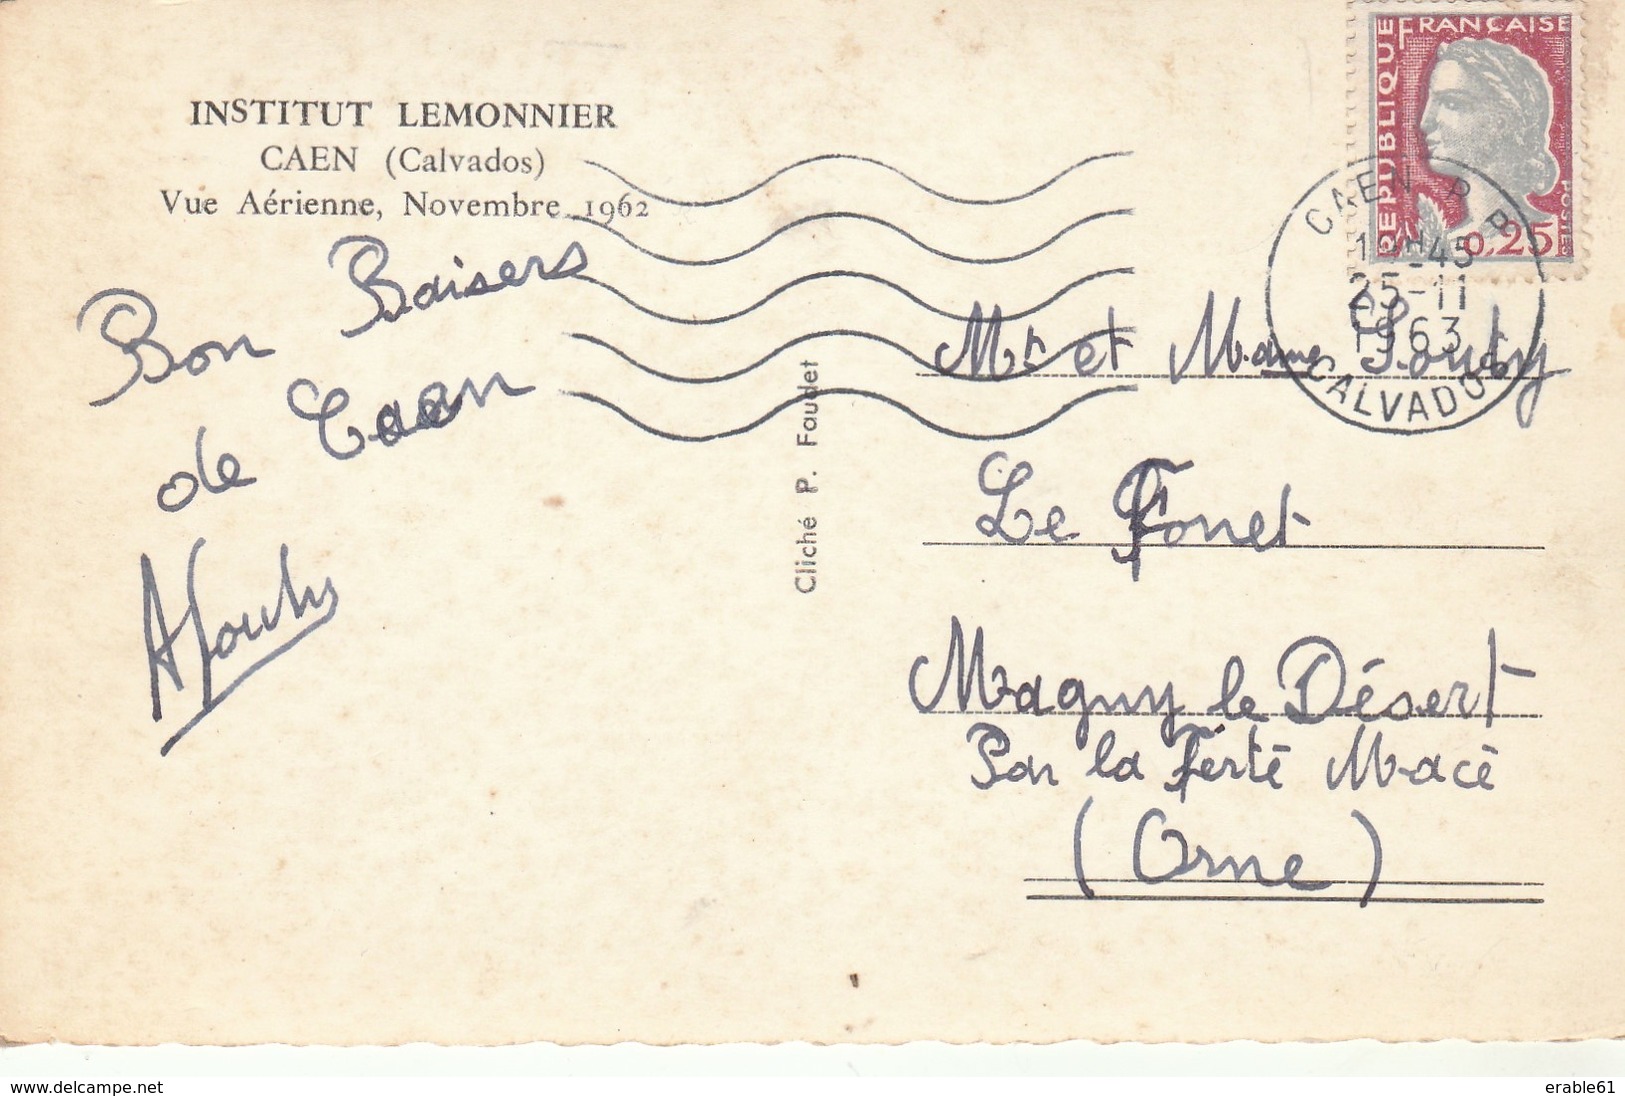 INSTITUT LEMONNIER
CAEN (Calvados)
Vue Aérienne, Novembre 1962
Bon Baisers
de Caen
Cliché P. Faudet
REPUBLIQUE FRANÇAISE
POSTES
0,25F
CAEN R P
25-11
1963
CALVADOS
Mr et Mame
Le Fonet
Magny le Désert
Par la Ferté Macé
(Orne)
www.delcampe.net
erable61